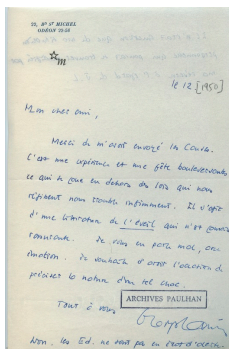 22, Bd St MICHEL
ODÉON
le 12 [1950]
Mon cher ami,
Merci de m'avoir envoyé les
C'est une expérience et une fête bouleversantes
ce qui se joue en dehors des lois qui nous
nous trouble infiniment. Il s'agit
d'une littérature de l'éveil qui n'est jamais
consciente. Je vous en parle mal, avec
émotion. Je souhaite d'avoir l'occasion de
préciser la nature d'un tel choc.
Tout à vous
ARCHIVES PAULHAN
les Ed. ne sont pas en état d'